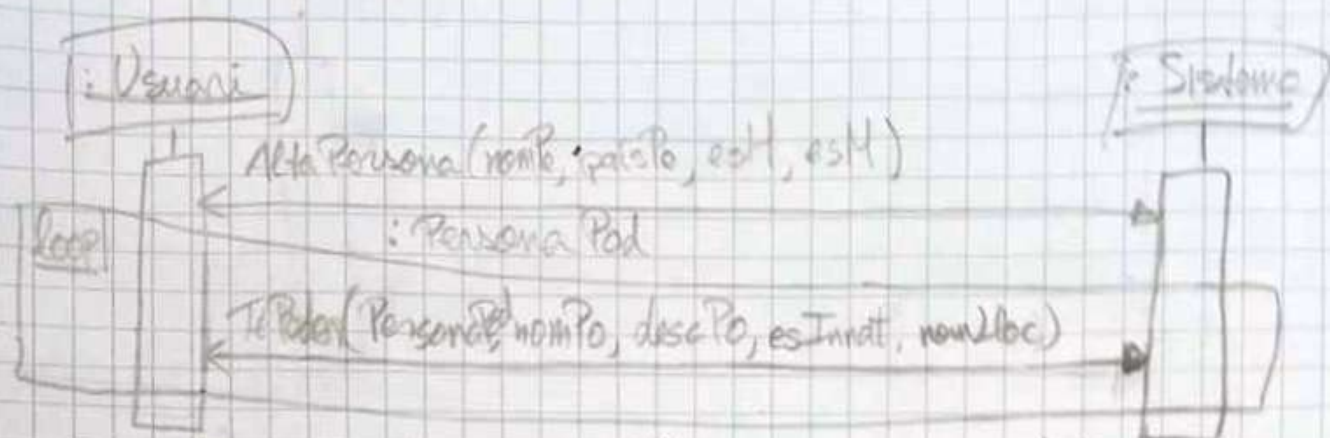 : Usuari
: Sistema
Alta Persona (nomPe, paisPe, esH, esM)
: Persona Pod
loop
TéPoder (PersonaPod, nomPo, descPo, esInnat, nomLloc)